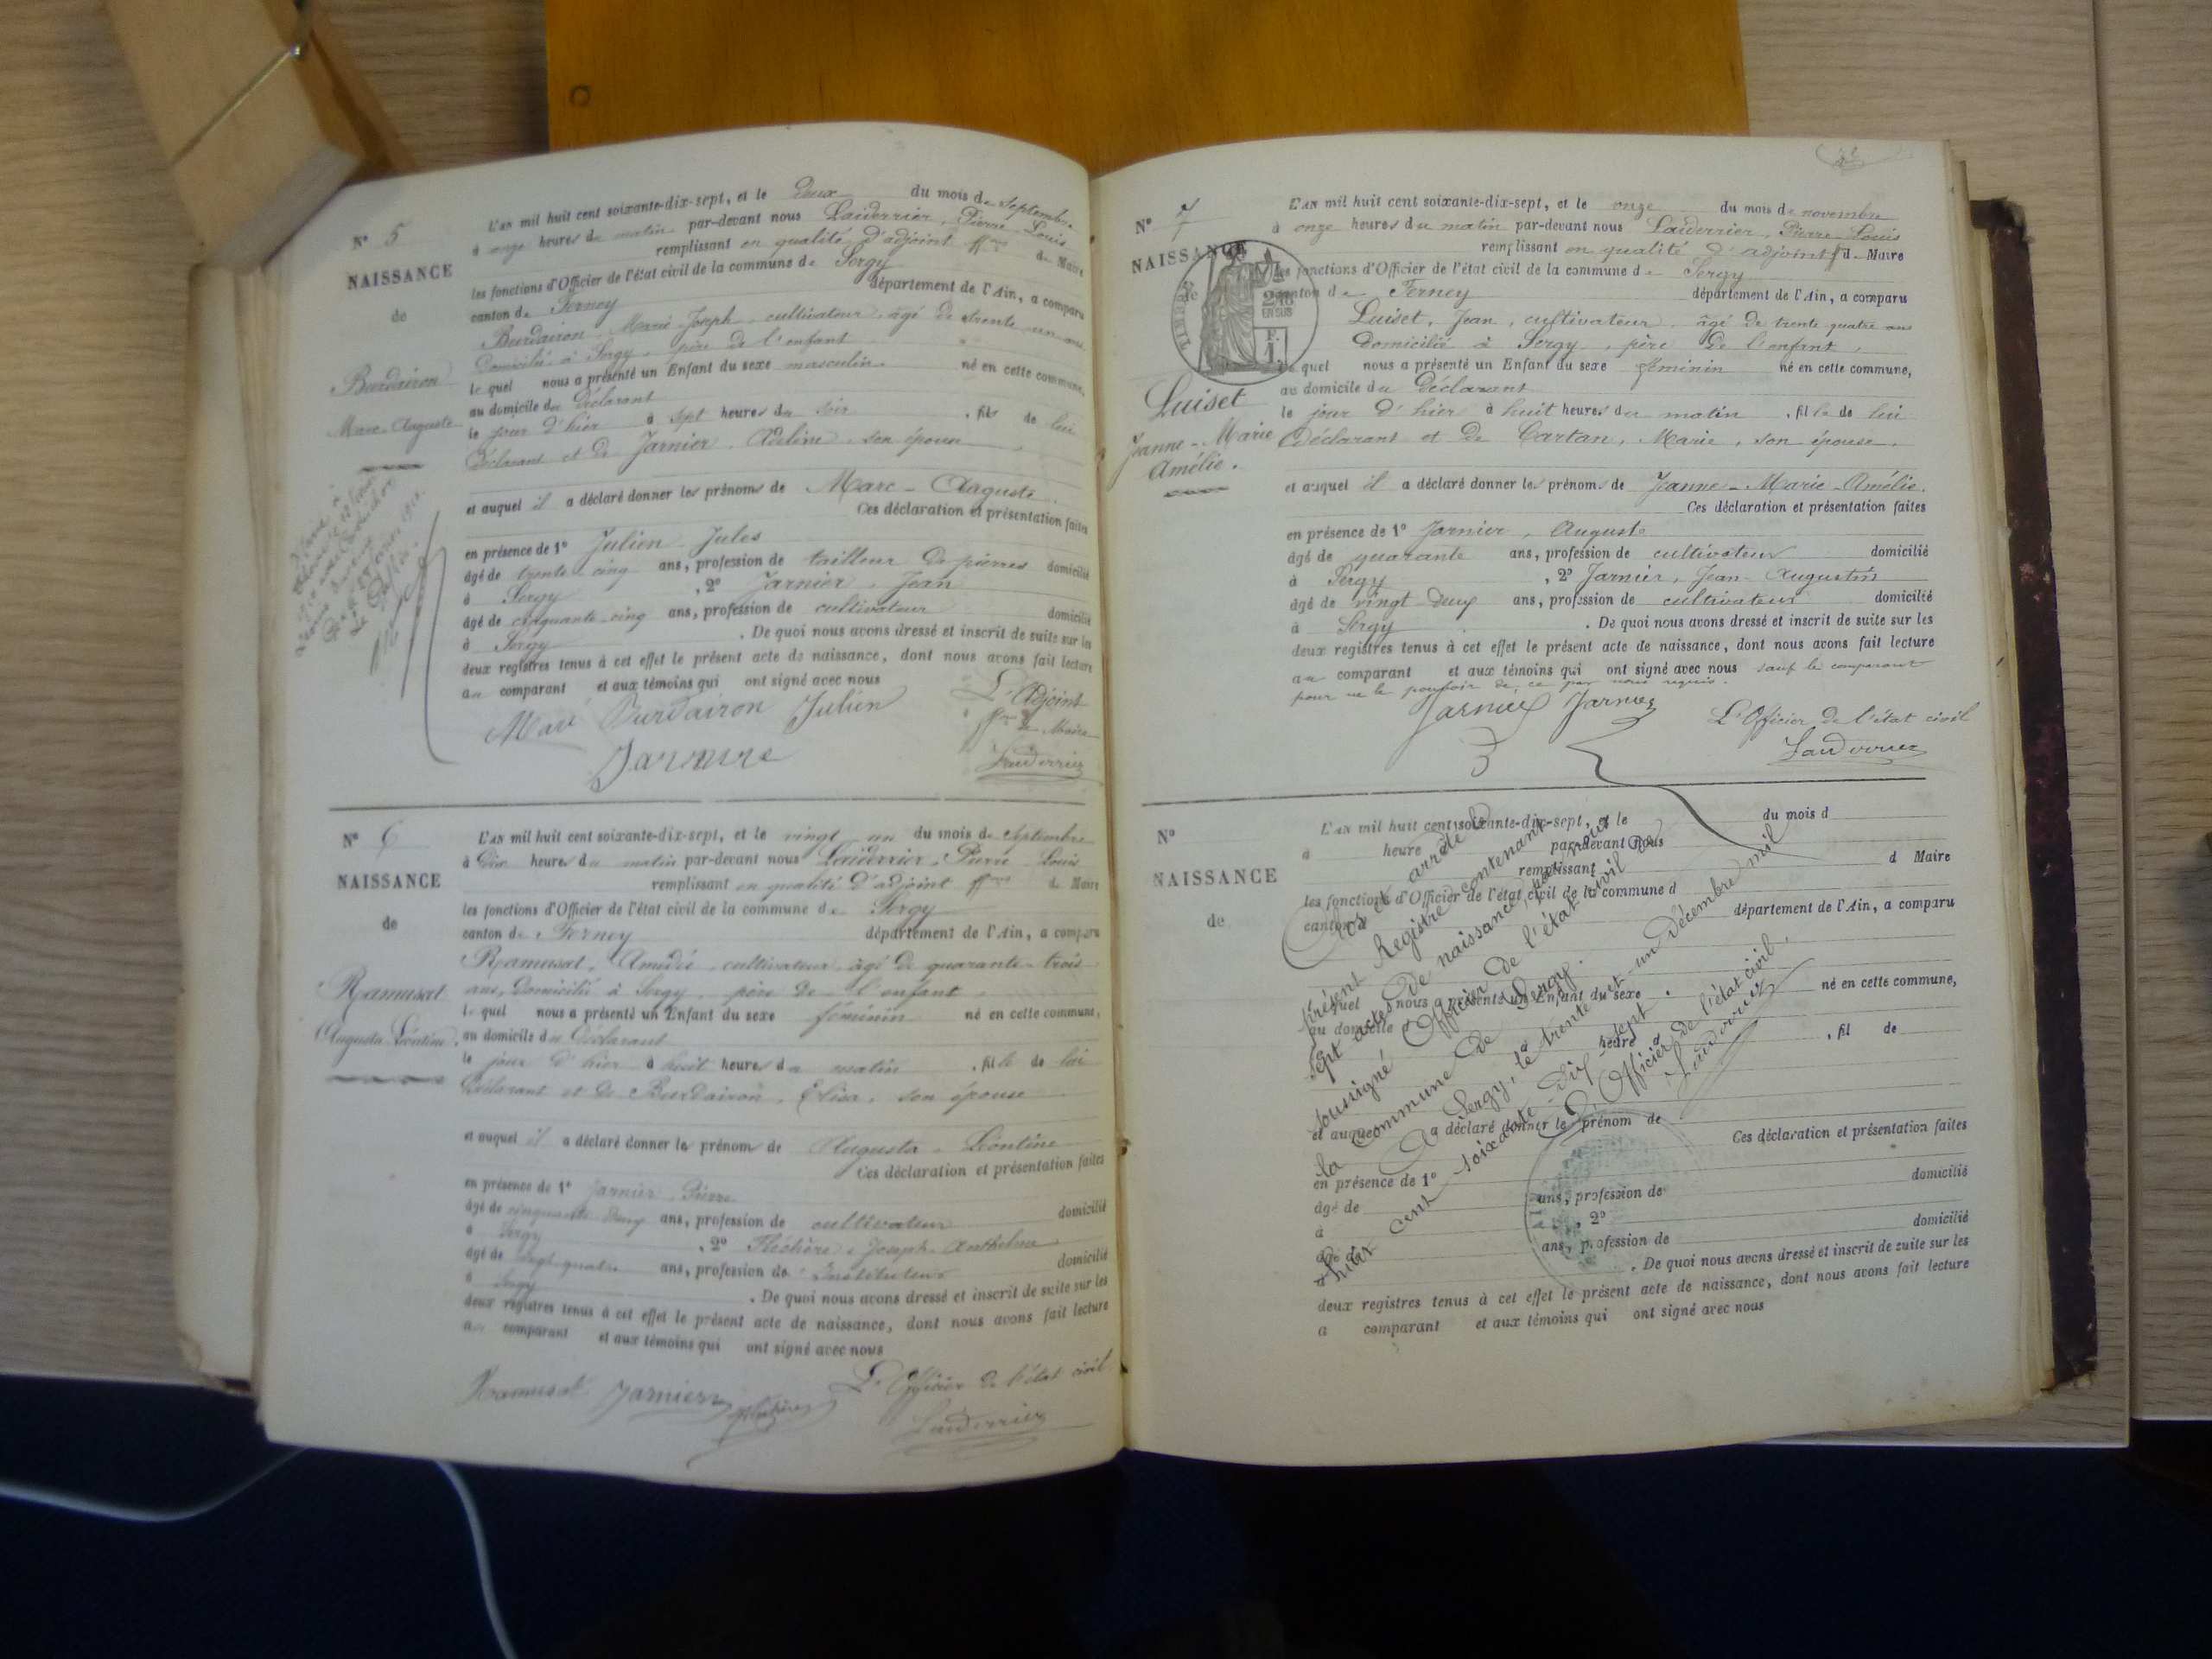 N° 5
NAISSANCE
de
Burdairon
Marc-Auguste
L'AN mil huit cent soixante-dix-sept, et le deux du mois de septembre
à onze heures du matin par-devant nous Lauderrier, Pierre Louis
remplissant en qualité d'adjoint ff.ons de Maire
les fonctions d'Officier de l'état civil de la commune de Sergy
canton de Ferney département de l'Ain, a comparu
Burdairon, Marie Joseph, cultivateur, âgé de trente un ans
domicilié à Sergy, père de l'enfant
lequel nous a présenté un Enfant du sexe masculin né en cette commune,
au domicile du déclarant
le jour d'hier à sept heures du soir, fils de lui
déclarant et de Jarnier, Adeline, son épouse
et auquel il a déclaré donner les prénoms de Marc-Auguste.
Ces déclaration et présentation faites
en présence de 1° Julien Jules
âgé de trente-cinq ans, profession de tailleur de pierres domicilié
à Sergy, 2° Jarnier, Jean
âgé de cinquante-cinq ans, profession de cultivateur domicilié
à Sergy. De quoi nous avons dressé et inscrit de suite sur les
deux registres tenus à cet effet le présent acte de naissance, dont nous avons fait lecture
au comparant et aux témoins qui ont signé avec nous
Burdairon Julien L'Adjoint
de Maire
Lauderrier
N° 6
NAISSANCE
de
Ramusat
Augusta Léontine.
L'AN mil huit cent soixante-dix-sept, et le vingt un du mois de septembre
à dix heures du matin par-devant nous Lauderrier, Pierre Louis
remplissant en qualité d'adjoint ff.ons de Maire
les fonctions d'Officier de l'état civil de la commune de Sergy
canton de Ferney département de l'Ain, a comparu
Ramusat, Amédée, cultivateur, âgé de quarante-trois
ans, domicilié à Sergy, père de l'enfant
lequel nous a présenté un Enfant du sexe féminin né en cette commune,
au domicile du déclarant
le jour d'hier à huit heures du matin, fille de lui
déclarant et de Burdairon, Elisa, son épouse
et auquel il a déclaré donner les prénom de Augusta-Léontine
Ces déclaration et présentation faites
en présence de 1° Jarnier, Pierre
âgé de cinquante deux ans, profession de cultivateur domicilié
à Sergy, 2° Joseph-Anthelme
âgé de vingt-quatre ans, profession de Instituteur domicilié
à Sergy. De quoi nous avons dressé et inscrit de suite sur les
deux registres tenus à cet effet le présent acte de naissance, dont nous avons fait lecture
au comparant et aux témoins qui ont signé avec nous
L'Officier de l'état civil
Ramusat Jarnier Lauderrier
N° 7
NAISSANCE
de
TIMBRE
2/10 EN SUS
F. 1.
Luiset
Jeanne-Marie
Amélie.
L'AN mil huit cent soixante-dix-sept, et le onze du mois de novembre
à onze heures du matin par-devant nous Lauderrier, Pierre Louis
remplissant en qualité d'adjoint f de Maire
les fonctions d'Officier de l'état civil de la commune de Sergy
canton de Ferney département de l'Ain, a comparu
Luiset, Jean, cultivateur, âgé de trente quatre ans
domicilié à Sergy, père de l'enfant,
lequel nous a présenté un Enfant du sexe féminin né en cette commune,
au domicile du déclarant
le jour d'hier à huit heures du matin, fille de lui
déclarant et de Cartan, Marie, son épouse.
et auquel il a déclaré donner les prénoms de Jeanne-Marie-Amélie.
Ces déclaration et présentation faites
en présence de 1° Jarnier, Auguste
âgé de quarante ans, profession de cultivateur domicilié
à Sergy, 2° Jarnier, Jean-Augustin
âgé de vingt-deux ans, profession de cultivateur domicilié
à Sergy. De quoi nous avons dressé et inscrit de suite sur les
deux registres tenus à cet effet le présent acte de naissance, dont nous avons fait lecture
au comparant et aux témoins qui ont signé avec nous sauf le comparant
pour ne le pouvoir de ce par nous requis.
Jarnier Jarnier L'Officier de l'état civil
Lauderrier
N°
NAISSANCE
de
L'AN mil huit cent soixante-dix-sept, et le du mois d
à heure par-devant nous
remplissant d Maire
les fonctions d'Officier de l'état civil de la commune d
canton d département de l'Ain, a comparu
lequel nous a présenté un Enfant du sexe né en cette commune,
au domicile d
le à heure d, fil de
et auquel a déclaré donner le prénom de
Ces déclaration et présentation faites
en présence de 1°
âgé de ans, profession de domicilié
à , 2°
âgé de ans, profession de domicilié
à . De quoi nous avons dressé et inscrit de suite sur les
deux registres tenus à cet effet le présent acte de naissance, dont nous avons fait lecture
a comparant et aux témoins qui ont signé avec nous
Clos et arrêté le
présent Registre contenant
sept actes de naissance, par nous
soussigné Officier de l'état civil de
la commune de Sergy.
A Sergy, le trente-et-un décembre mil
huit cent soixante-dix-sept.
L'Officier de l'état civil,
Lauderrier